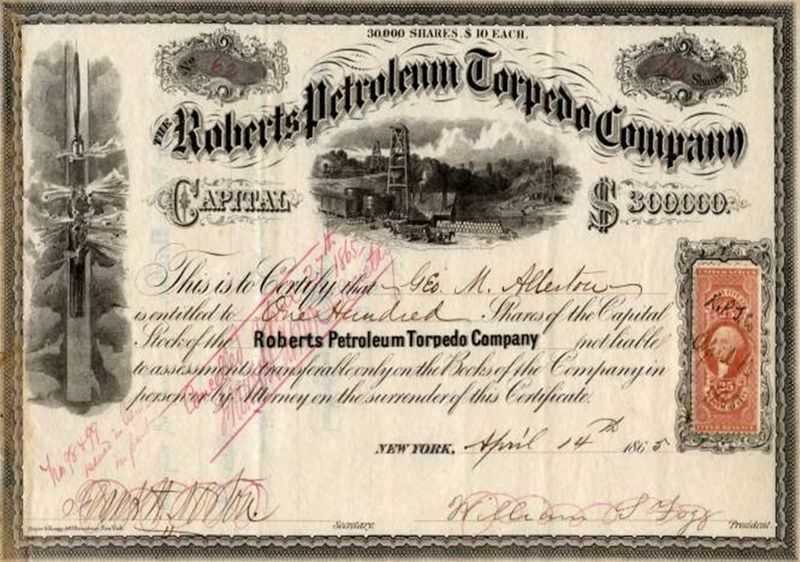 30.000 SHARES. $ 10 EACH.
No 62
100 Shares
THE Roberts Petroleum Torpedo Company
CAPITAL $ 300.000.
This is to Certify, that Geo. M. Allerton
is entitled to One Hundred Shares of the Capital
Stock of the Roberts Petroleum Torpedo Company not liable
to assessments, transferable only on the Books of the Company in
person or by Attorney on the surrender of this Certificate.
NEW YORK, April 14th 1865
Cancelled
1865
27th
No 98 & 99
issued in
in part
UNITED STATES
25
INTER. REVENUE
Secretary.
William S Fogg President.